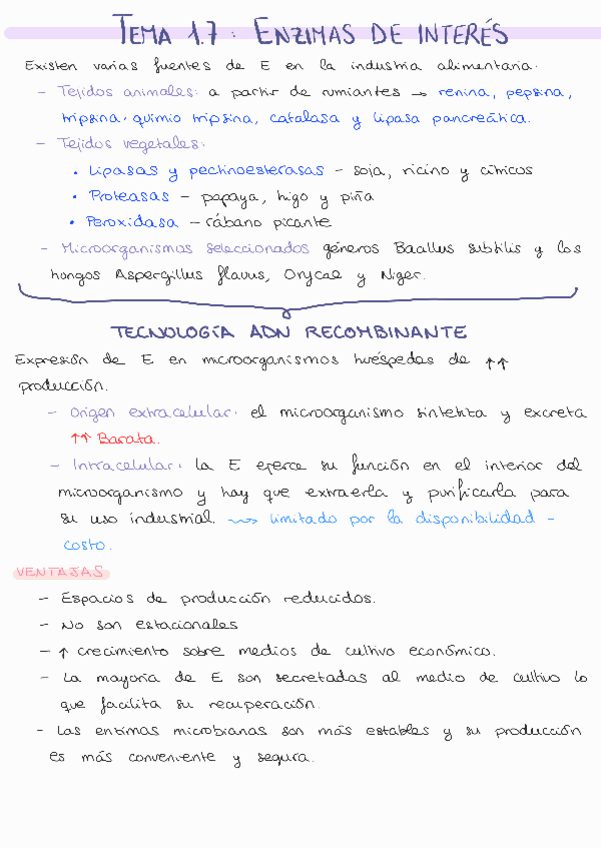 TEMA 1.7: ENZIMAS DE INTERÉS
Existen varias fuentes de E en la industria alimentaria.
- Tejidos animales: a partir de rumiantes → renina, pepsina,
tripsina, quimio tripsina, catalasa y lipasa pancreática.
- Tejidos vegetales:
• Lipasas y pechinoesterasas - soja, ricino y cítricos
• Proteasas - papaya, higo y piña
• Peroxidasa - rábano picante
- Microorganismos seleccionados géneros Baallus subtilis y los
hongos Aspergillus flavus, Orycae y Niger.
TECNOLOGÍA ADN RECOMBINANTE
Expresión de E en microorganismos huéspedes de ↑↑
producción.
- Origen extracelular: el microorganismo sintetita y excreta
↑↑ Barata.
- Intracelular: la E ejerce su función en el interior del
microorganismo y hay que extraerla y purificarla para
su uso industrial ⇝ limitado por la disponibilidad -
costo.
VENTAJAS
- Espacios de producción reducidos.
- No son estacionales
- ↑ crecimiento sobre medios de cultivo económico.
- La mayoría de E son secretadas al medio de cultivo lo
que facilita su recuperación.
- Las enzimas microbianas son más estables y su producción
es más conveniente y segura.